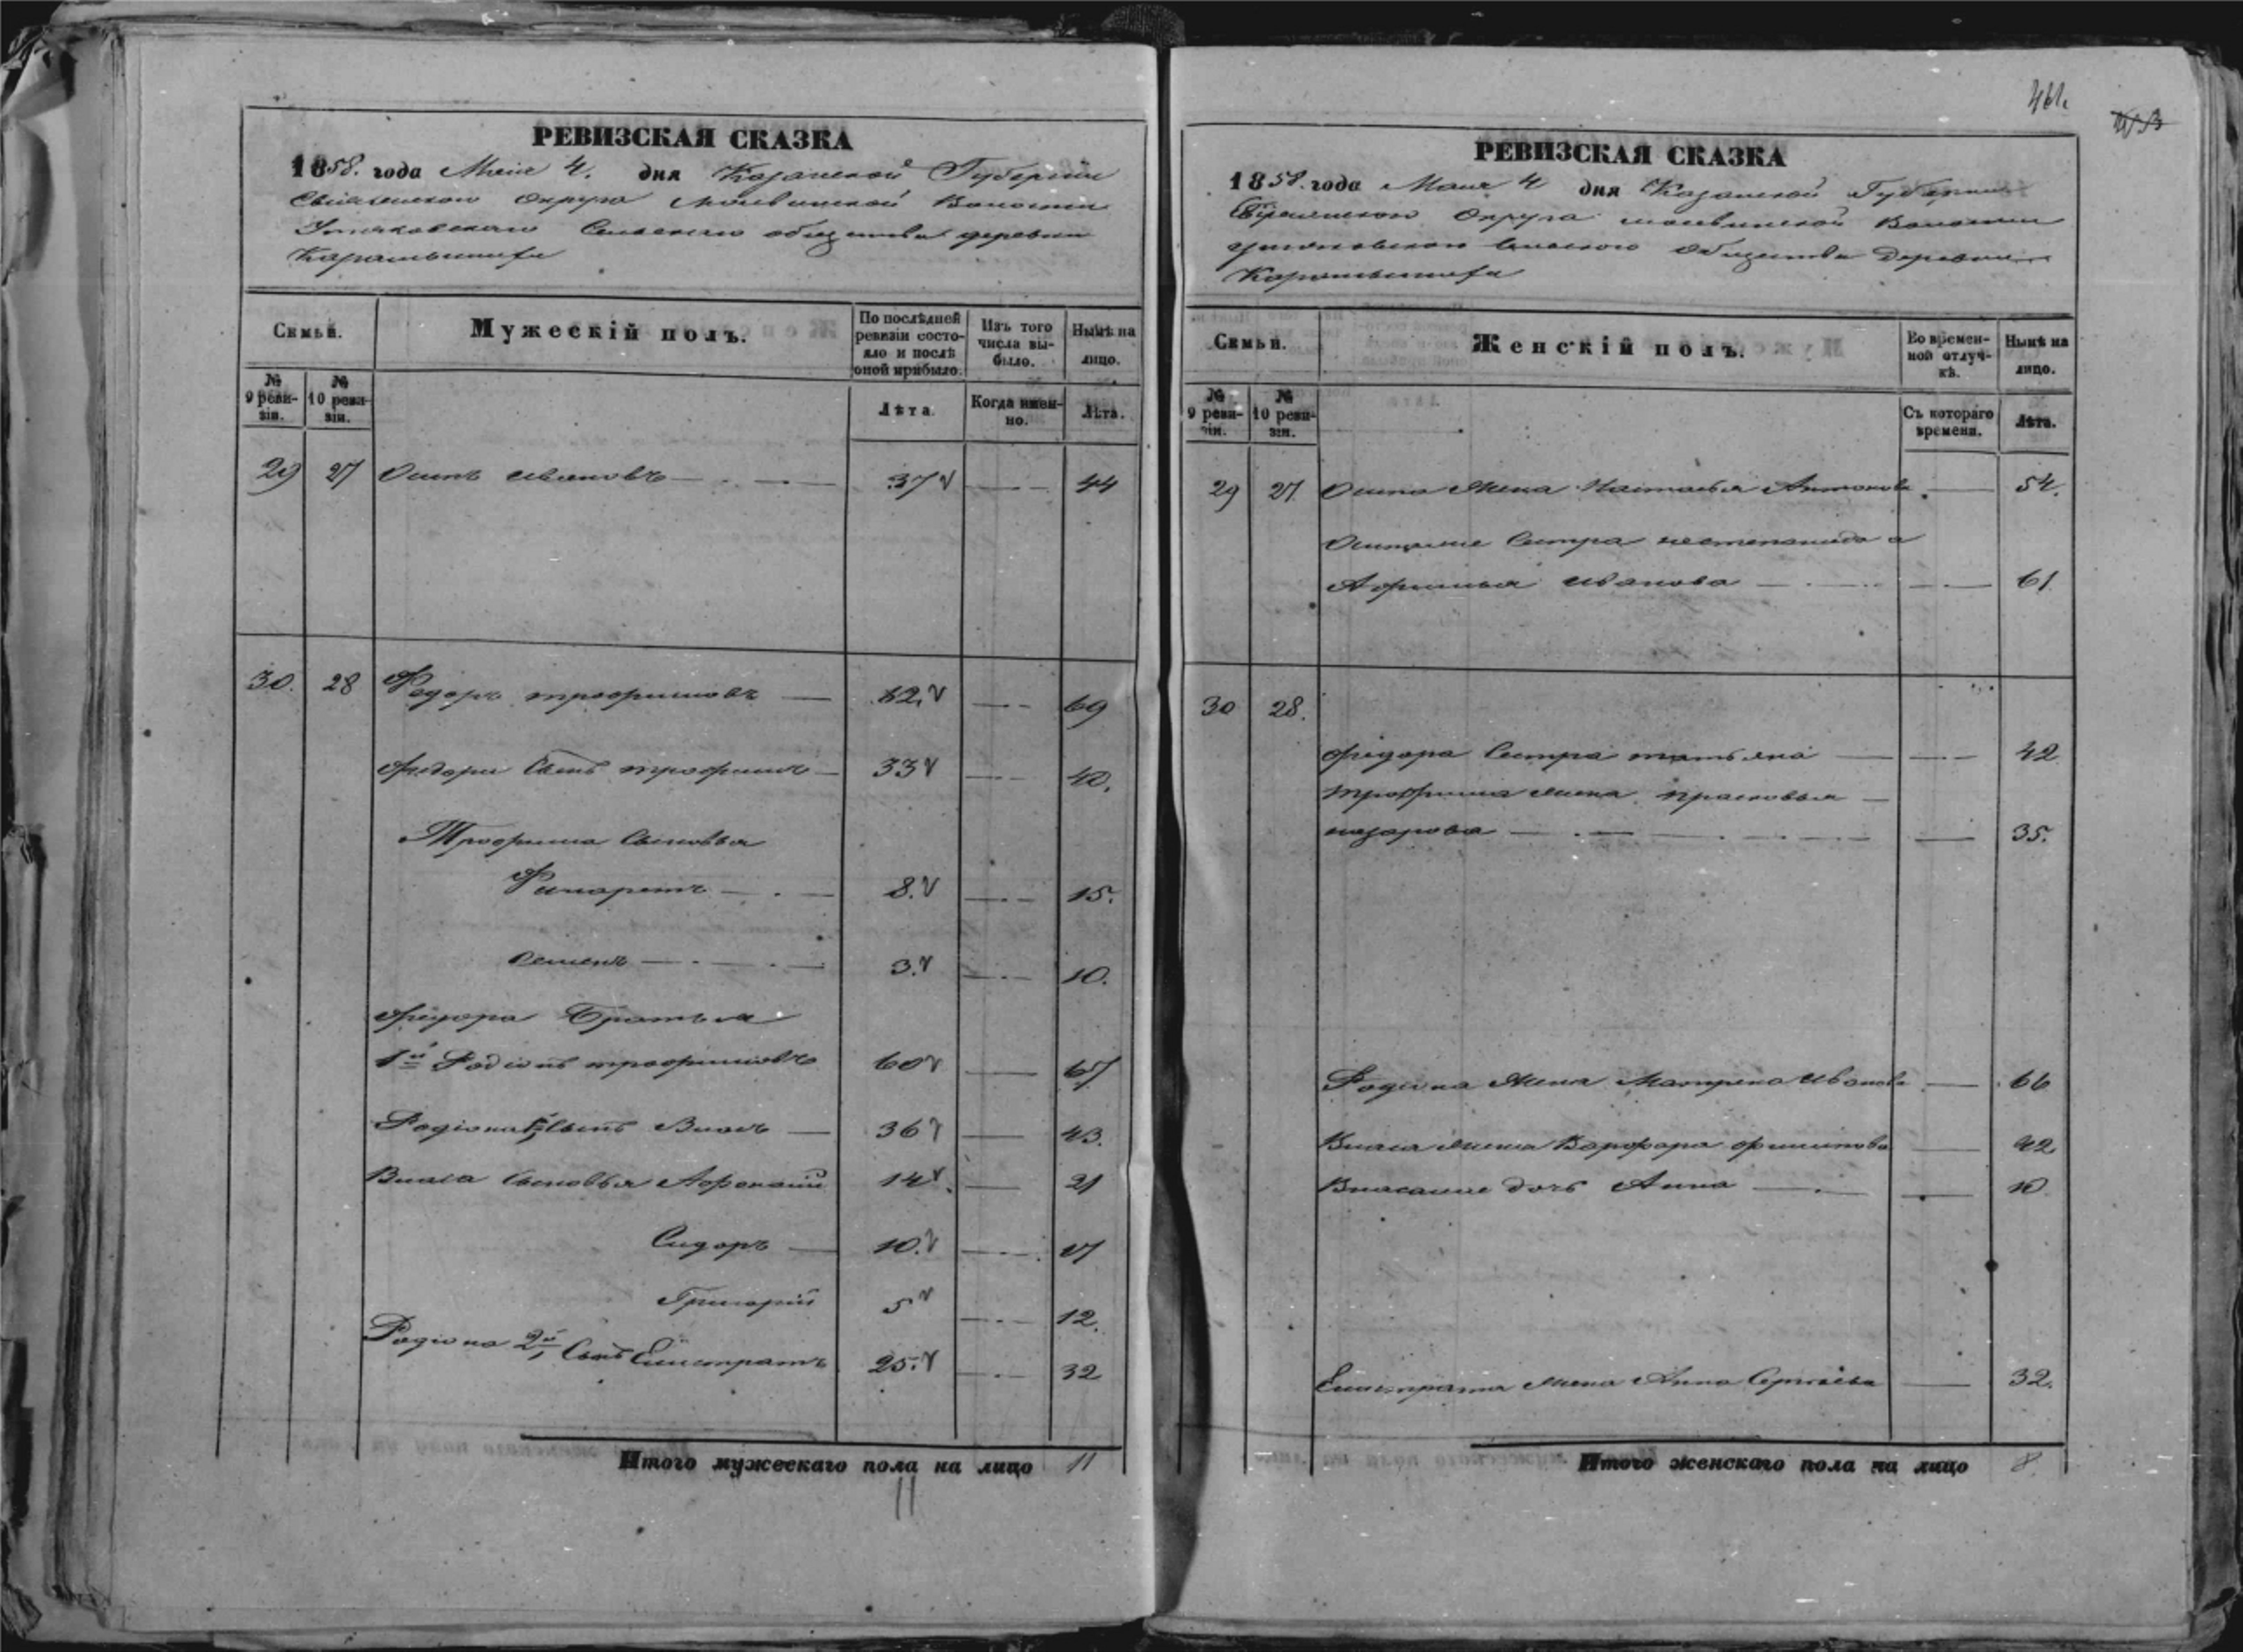 461.
РЕВИЗСКАЯ СКАЗКА
1858. года Маія 4. дня Казанской Губерніи
Свіяжскаго Округа Волости
Сельскаго общества деревни
Семьи.
Мужескій полъ.
По послѣдней ревизіи состояло и послѣ оной прибыло.
Изъ того числа выбыло.
Нынѣ на лицо.
№ 9 ревизіи.
№ 10 ревизіи.
Лѣта.
Когда именно.
Лѣта.
29 27 Осипъ Ивановъ 37 44
30. 28 Федоръ трофимовъ 62. 69
Федора Сынъ трофимъ 33 40.
Трофима Сыновья
Филаретъ 8. 15.
Семенъ 3. 10.
Федора Братья
1й Родіонъ трофимовъ 60 67
Родіона 1й Сынъ Власъ 36 43.
Власа Сыновья Афонасій 14. 21
Сидоръ 10. 17
Григорій 5 12.
Родіона 2й Сынъ Елистратъ 25. 32
Итого мужескаго пола на лицо 11
11
РЕВИЗСКАЯ СКАЗКА
1858. года Маія 4 дня Казанской Губерніи
Свіяжскаго Округа Волости
Сельскаго Общества Деревни
Семьи.
Женскій полъ.
Во временной отлучкѣ.
Нынѣ на лицо.
№ 9 ревизіи.
№ 10 ревизіи.
Съ котораго времени.
Лѣта.
29 27. Осипа Жена Настасья Антонова 54.
Сестра
Иванова 61
30 28.
Федора Сестра татьяна 42
трофима жена прасковья
назарова 35.
Родіона Жена Матрена Иванова 66
Власа жена Варфара филипова 42
дочь Анна 10.
Елистрата жена Анна Сергѣева 32.
Итого женскаго пола на лицо 8.